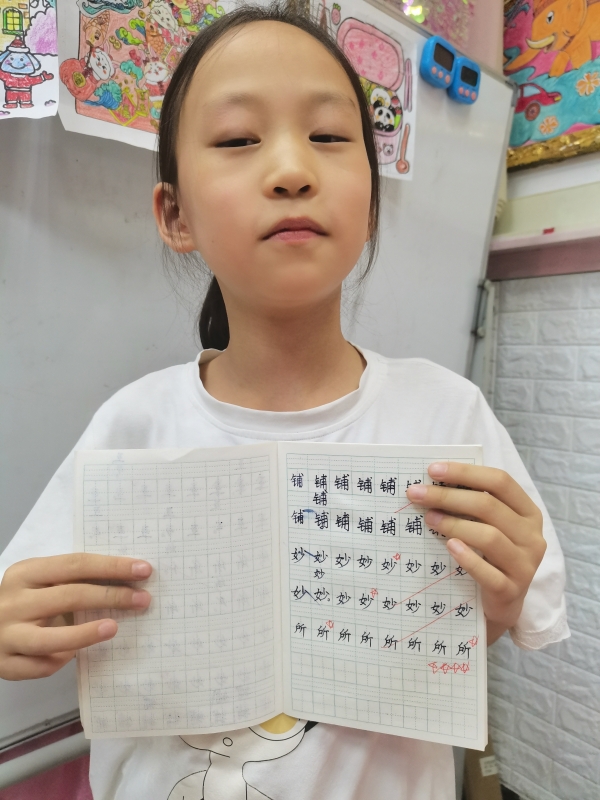 铺 铺 铺 铺 铺
铺
铺 铺 铺 铺 铺 铺
妙 妙 妙 妙 妙 妙 妙 妙
妙
妙 妙 妙 妙 妙 妙 妙 妙
所 所 所 所 所 所 所 所